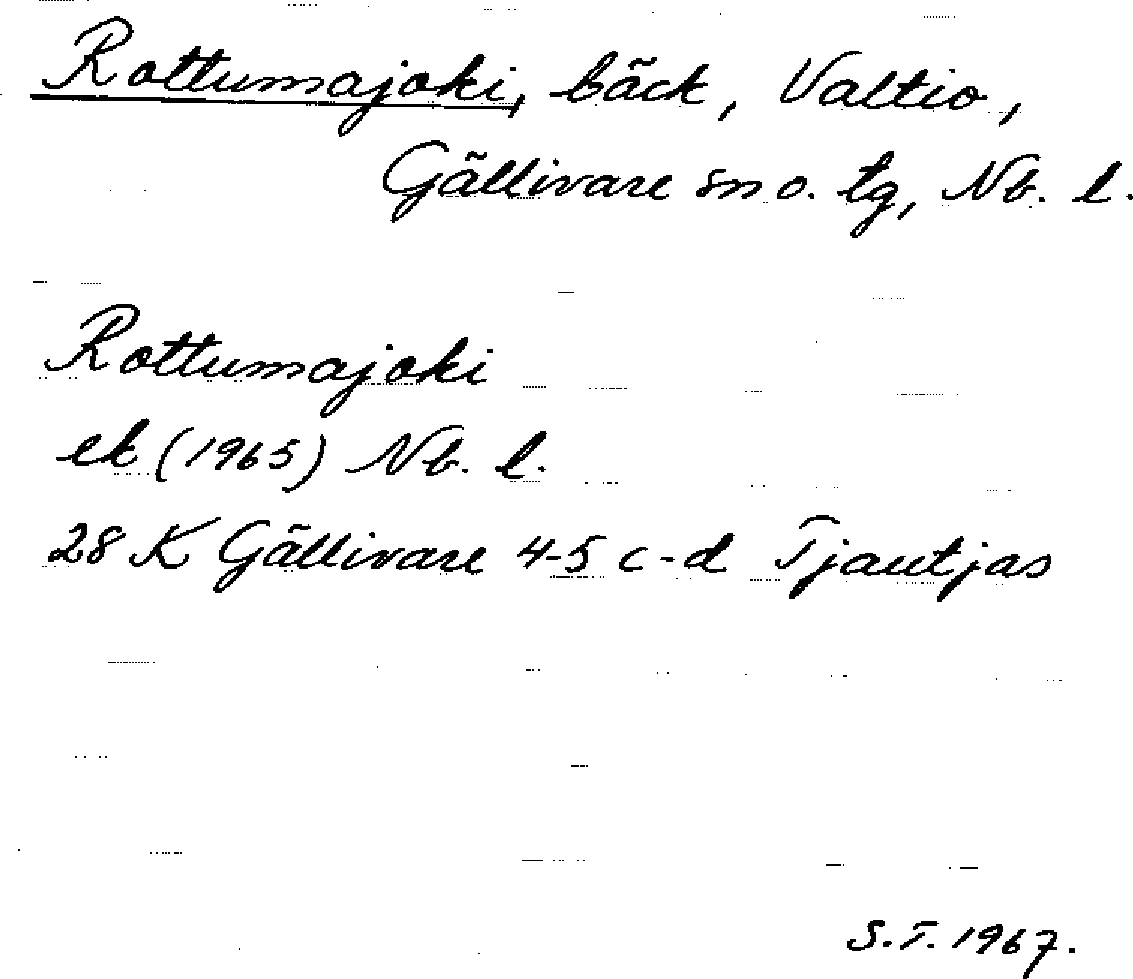 Rottumajoki, bäck, Valtio,
Gällivare sn o. tg, Nb. l.
Rottumajoki
ek (1965) Nb. l.
28 K Gällivare 4-5 c-d Tjautjas
S.T. 1967.